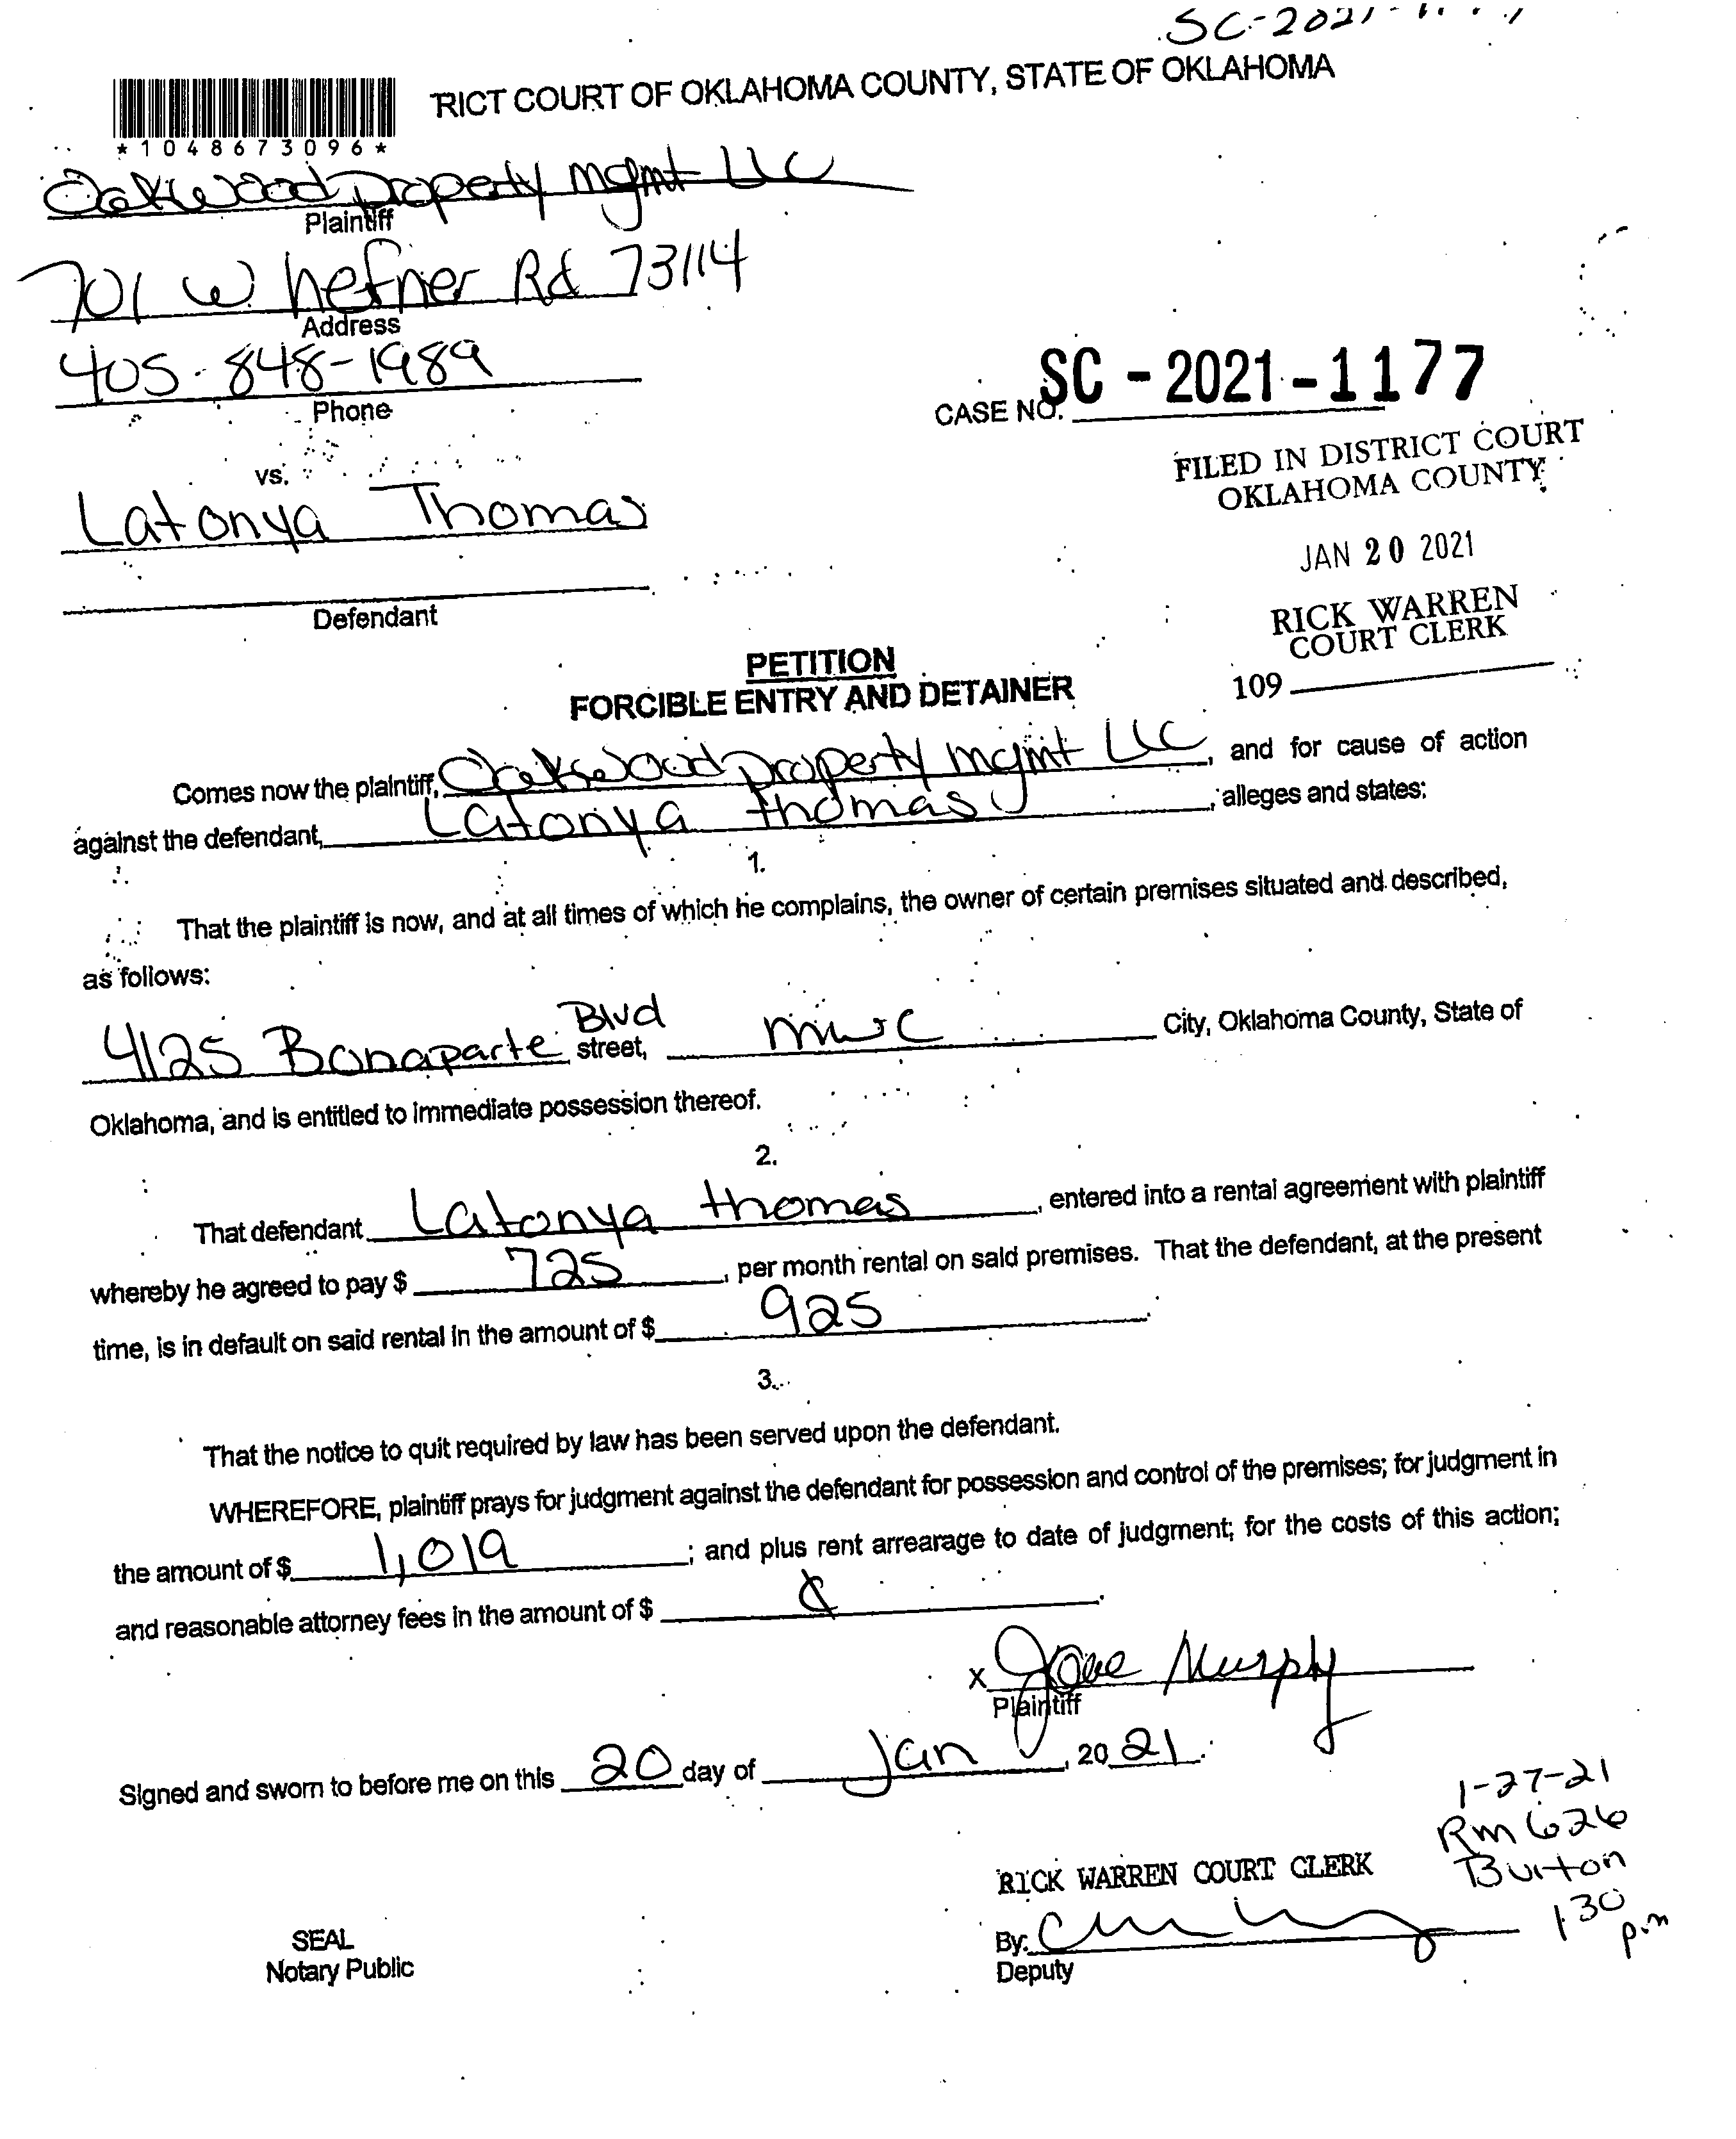 SC-2021-
RICT COURT OF OKLAHOMA COUNTY, STATE OF OKLAHOMA
*1048673096*
Oakwood Property Mgmt LLC
Plaintiff
701 W. Hefner Rd 73114
Address
405-848-1989
Phone
CASE NO. SC - 2021 - 1177
FILED IN DISTRICT COURT
OKLAHOMA COUNTY
vs.
Latonya Thomas
JAN 20 2021
Defendant
RICK WARREN
COURT CLERK
109
PETITION
FORCIBLE ENTRY AND DETAINER
Comes now the plaintiff, Oakwood Property Mgmt LLC, and for cause of action
against the defendant, Latonya thomas, alleges and states:
1.
That the plaintiff is now, and at all times of which he complains, the owner of certain premises situated and described,
as follows:
4125 Bonaparte Blvd street, mwc City, Oklahoma County, State of
Oklahoma, and is entitled to immediate possession thereof.
2.
That defendant Latonya thomas, entered into a rental agreement with plaintiff
whereby he agreed to pay $ 725, per month rental on said premises. That the defendant, at the present
time, is in default on said rental in the amount of $ 925.
3.
That the notice to quit required by law has been served upon the defendant.
WHEREFORE, plaintiff prays for judgment against the defendant for possession and control of the premises; for judgment in
the amount of $ 1,019; and plus rent arrearage to date of judgment; for the costs of this action;
and reasonable attorney fees in the amount of $
X Murphy
Plaintiff
Signed and sworn to before me on this 20 day of Jan, 20 21.
1-27-21
Rm 626
Burton
1:30
p.m
RICK WARREN COURT CLERK
By:
Deputy
SEAL
Notary Public